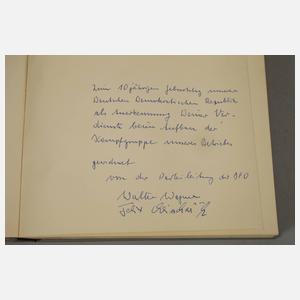 Zum 10 jährigen Geburtstag unserer
Deutschen Demokratischen Republik
als Anerkennung Deiner Ver-
dienste beim Aufbau der
Kampfgruppe unseres Betriebes
gewidmet
von der Parteileitung der SPO
Walter Wagner
Felix